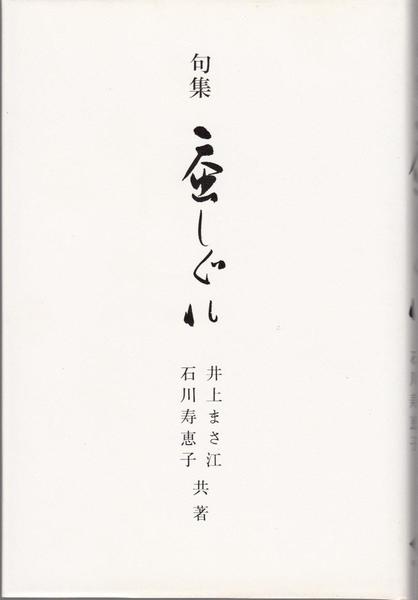 句集
蚕しぐれ
井上まさ江
石川寿恵子
共著